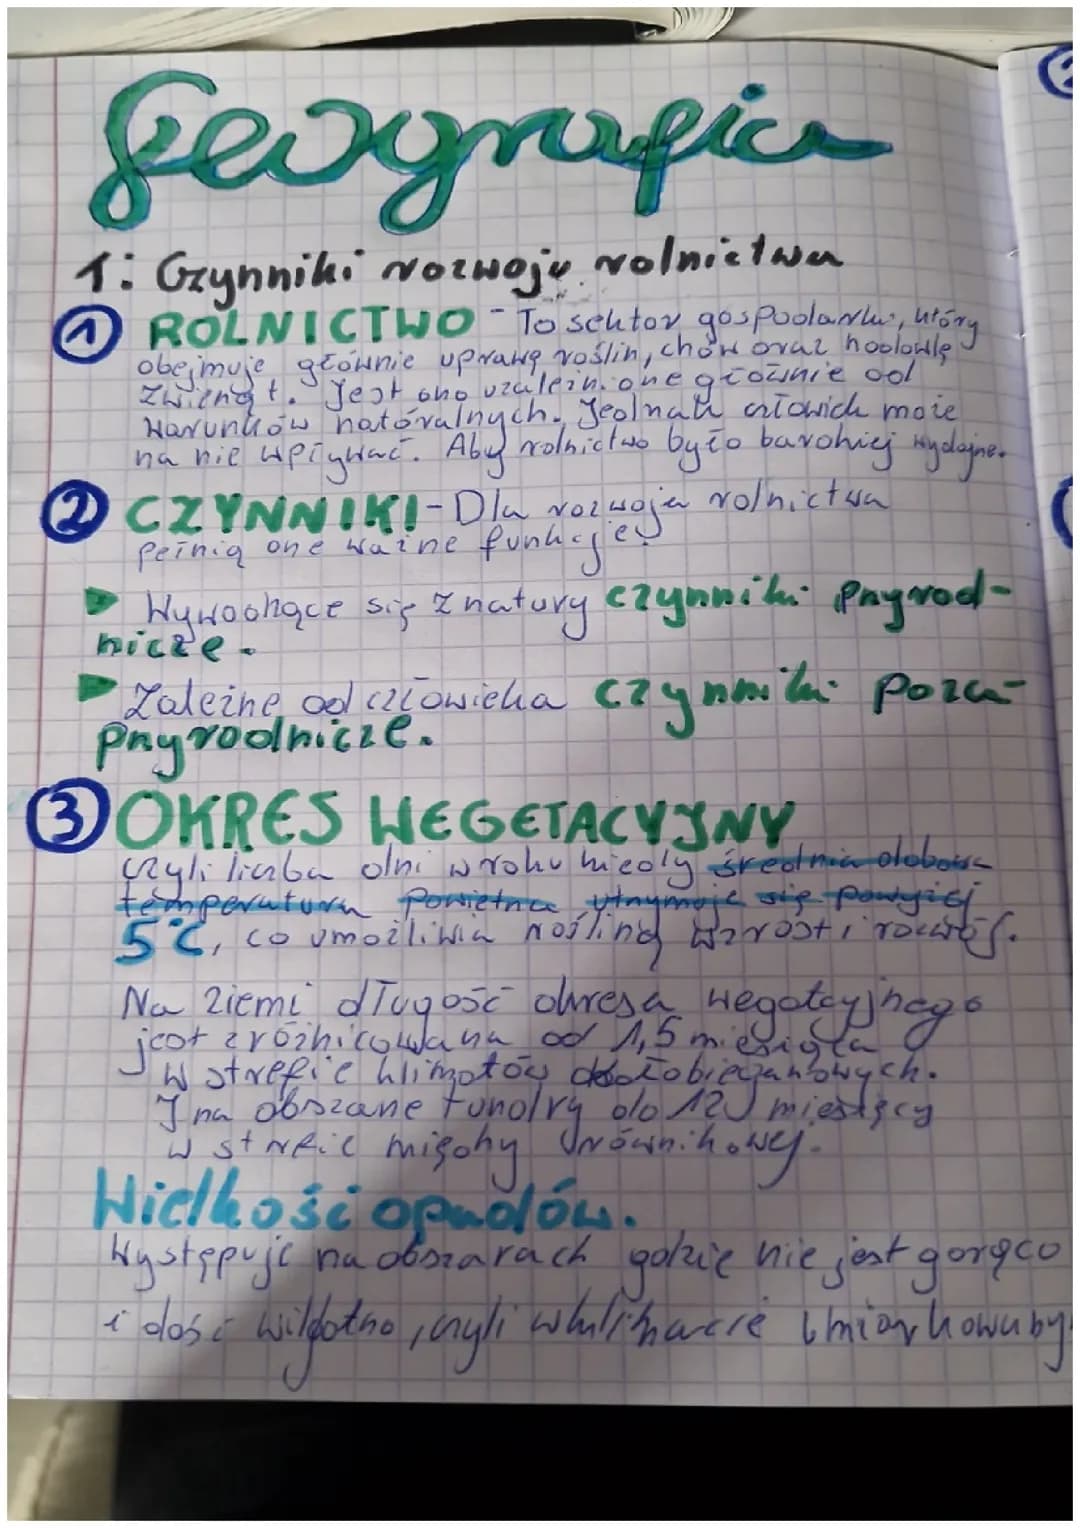 Geografia
1: Czynniki rozwoju rolnictwa
① ROLNICTWO - To sektor gospodarki, który
obejmuje głównie uprawę roślin, chów oraz hodowlę
zwierząt. Jest ono uzależnione głównie od
warunków naturalnych. Jednak człowiek może
na nie wpływać. Aby rolnictwo było bardziej wydajne.
② CZYNNIKI - Dla rozwoja rolnictwa
pełnią one ważne funkcje
Wywodzące się z natury czynniki przyrod-
nicze.
Zależne od człowieka czynniki poza-
przyrodnicze.
③ OKRES WEGETACYJNY
czyli liczba dni w roku kiedy średnia dobowa
temperatura powietrza utrzymuje się powyżej
5°C, co umożliwia rośliną wzrost i rozwój.
Na ziemi długość okresa wegatcyjnego
jest zróżnicowana od 1,5 miesiąca
w strefie klimatów okołobiegunowych.
I na obszarze tundry do 12 miesięcy
w strefie między równikowej.
Wielkość opadów.
Występuje na obszarach gdzie nie jest gorąco
i dość wilgotno, czyli w klimacie umiarkowany
2